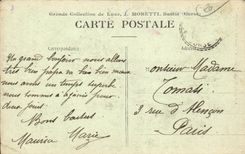 Grande Collection de Luxe, J. MORETTI, Bastia (Corse)
CARTE POSTALE
Correspondance
Un grand bonjour nous allons
très bien papa va très bien nous
avons un temps superbe
nous sommes à Ajaccio pour
deux jours
Bons baisers
Maurice Marie
Monsieur Madame
Tomasi
3 rue d'Alençon
Paris